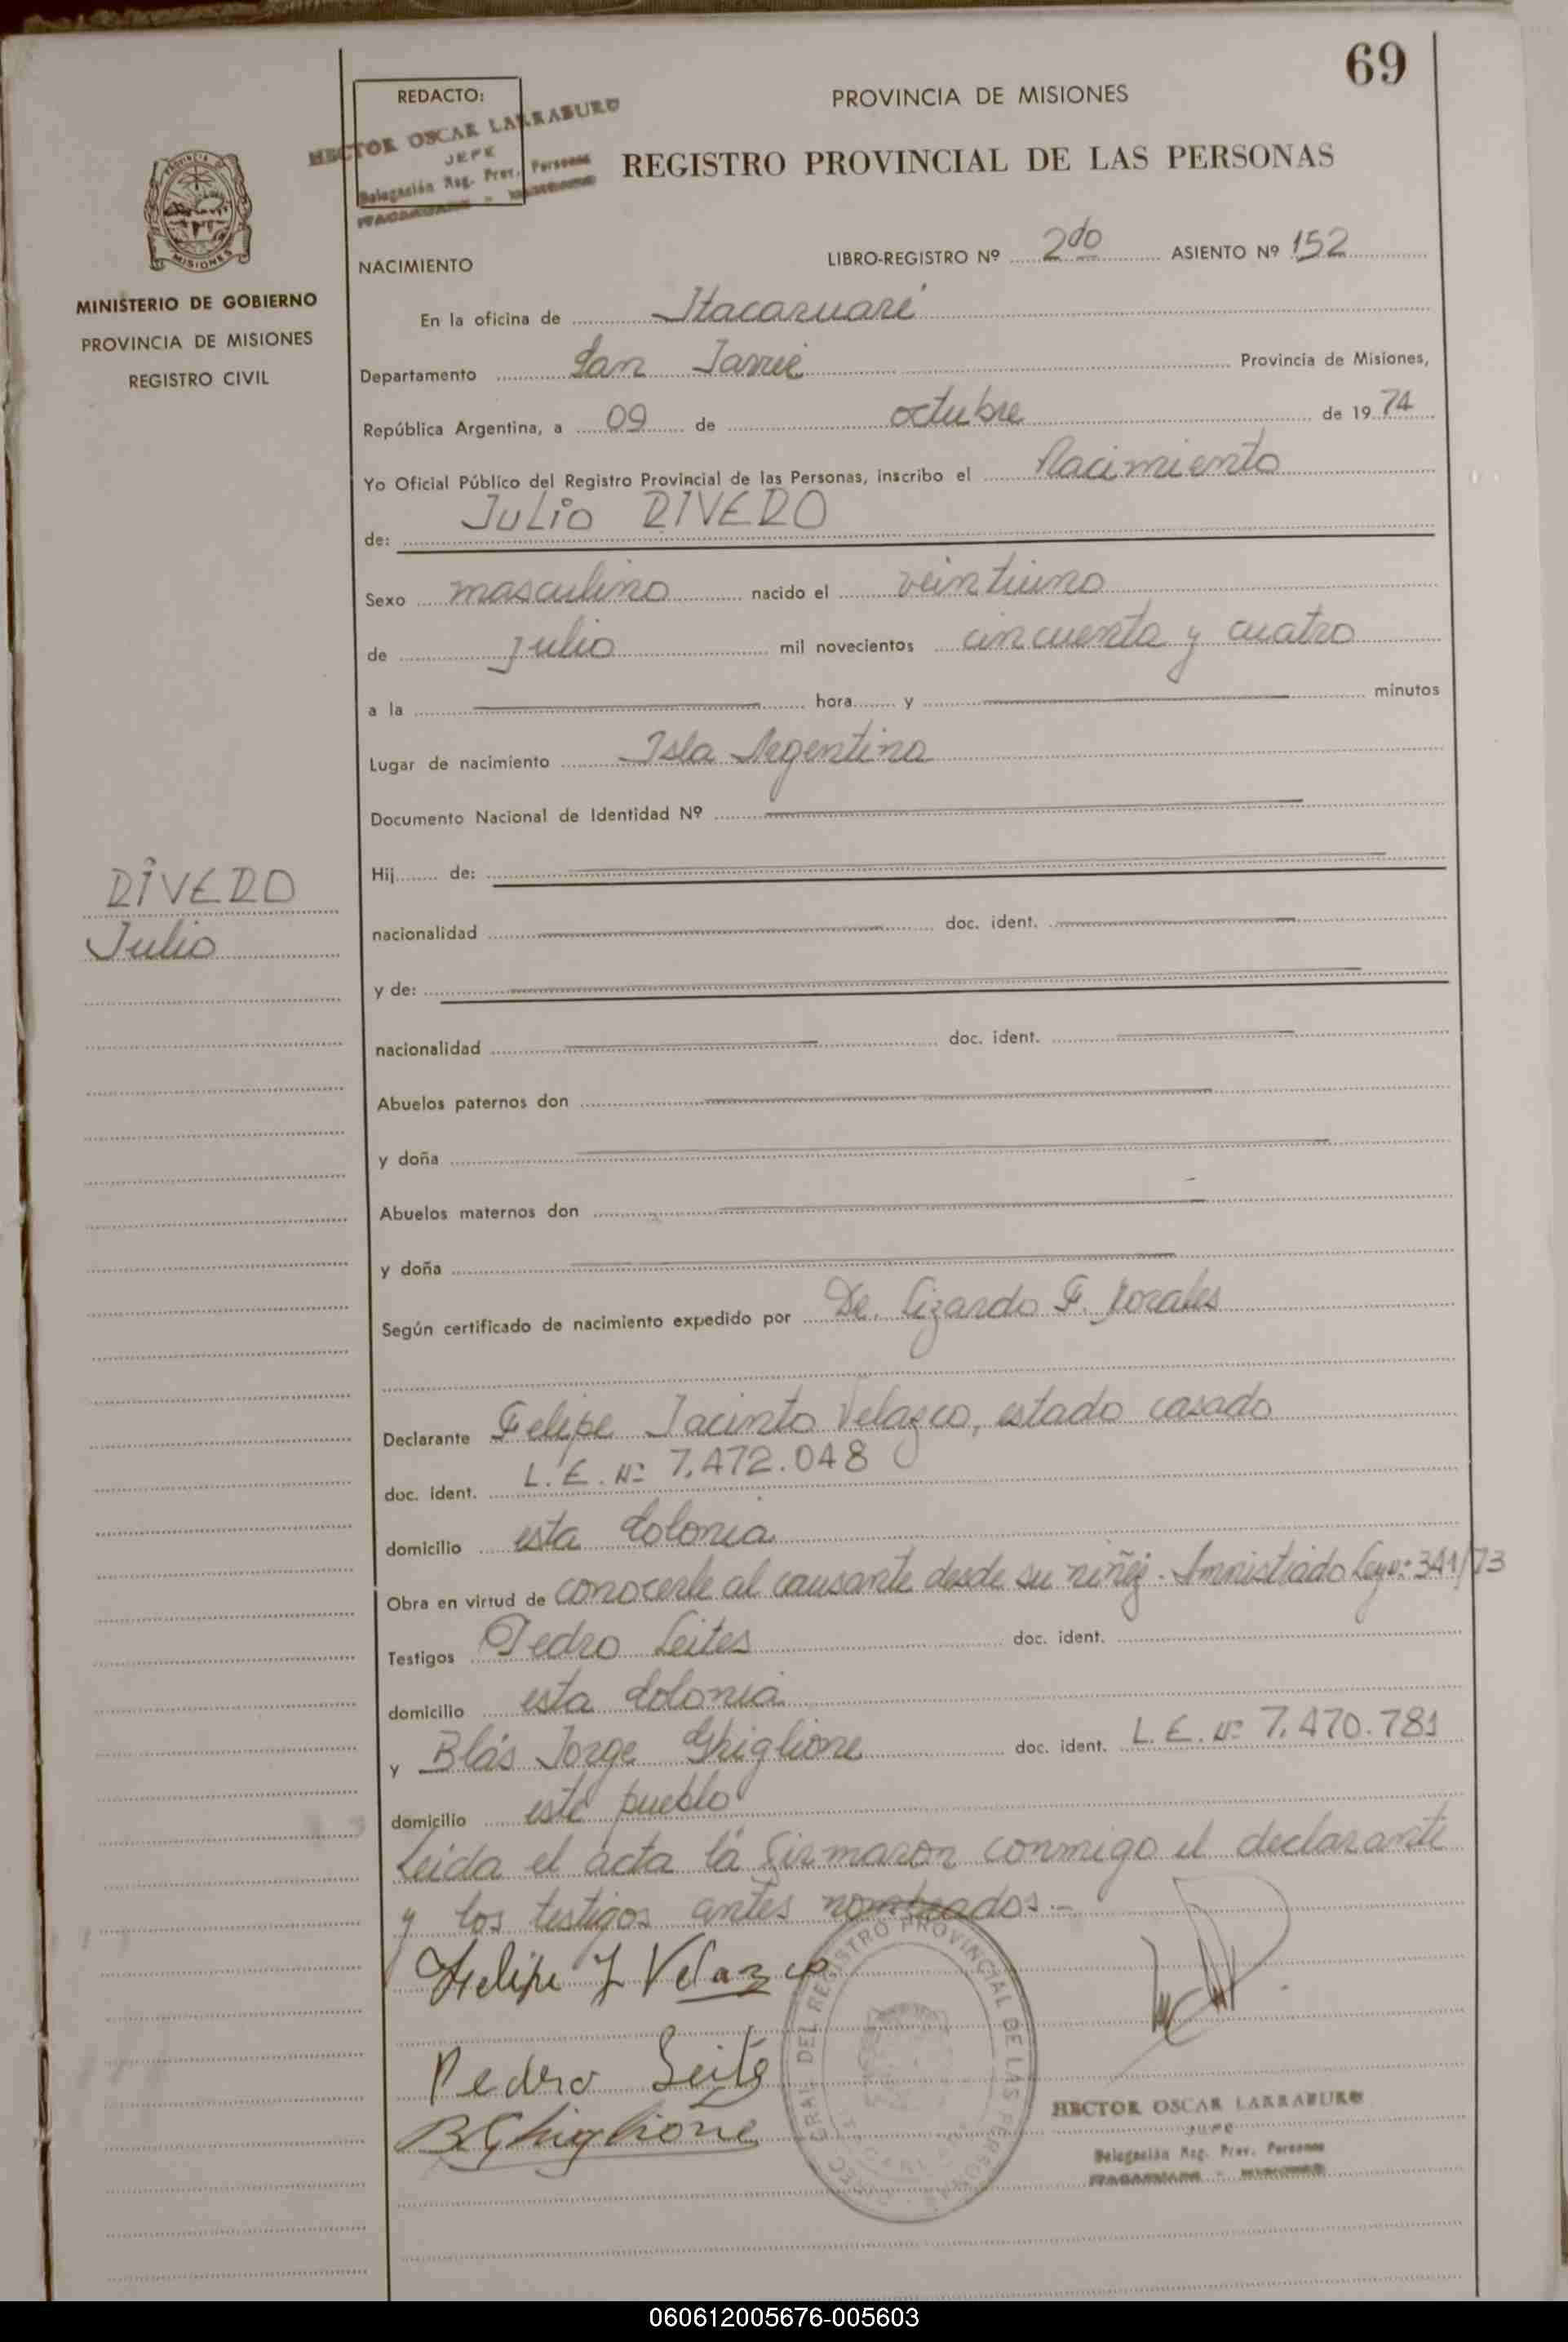 69
REDACTO:
HECTOR OSCAR LARRABURO
JEFE
Delegación Reg. Prov. Personas
PROVINCIA DE MISIONES
REGISTRO PROVINCIAL DE LAS PERSONAS
MISIONES
MINISTERIO DE GOBIERNO
PROVINCIA DE MISIONES
REGISTRO CIVIL
NACIMIENTO
LIBRO-REGISTRO Nº 2do ASIENTO Nº 152
En la oficina de Itacaruaré
Departamento San Javier Provincia de Misiones,
República Argentina, a 09 de octubre de 1974
Yo Oficial Público del Registro Provincial de las Personas, inscribo el Nacimiento
de: JULIO RIVERO
Sexo masculino nacido el veintiuno
de julio mil novecientos cincuenta y cuatro
a la hora y minutos
Lugar de nacimiento Isla Argentina
Documento Nacional de Identidad Nº
RIVERO
Julio
Hij de:
nacionalidad doc. ident.
y de:
nacionalidad doc. ident.
Abuelos paternos don
y doña
Abuelos maternos don
y doña
Según certificado de nacimiento expedido por Dr. Lizardo F. Morales
Declarante Felipe Jacinto Velazco, estado casado
doc. ident. L. E. Nº 7.472.048
domicilio esta Colonia
Obra en virtud de conocerle al causante desde su niñez. Amnistiado Ley nº 341/73
Testigos Pedro Leites doc. ident.
domicilio esta Colonia
y Blás Jorge Ghiglione doc. ident. L. E. Nº 7.470.781
domicilio este pueblo
Leida el acta la firmaron conmigo el declarante
y los testigos antes nombrados.-
Felipe J Velazco
Pedro Leites
B Ghiglione
DEL REGISTRO PROVINCIAL DE LAS PERSONAS
HECTOR OSCAR LARRABURO
JEFE
Delegación Reg. Prov. Personas
060612005676-005603